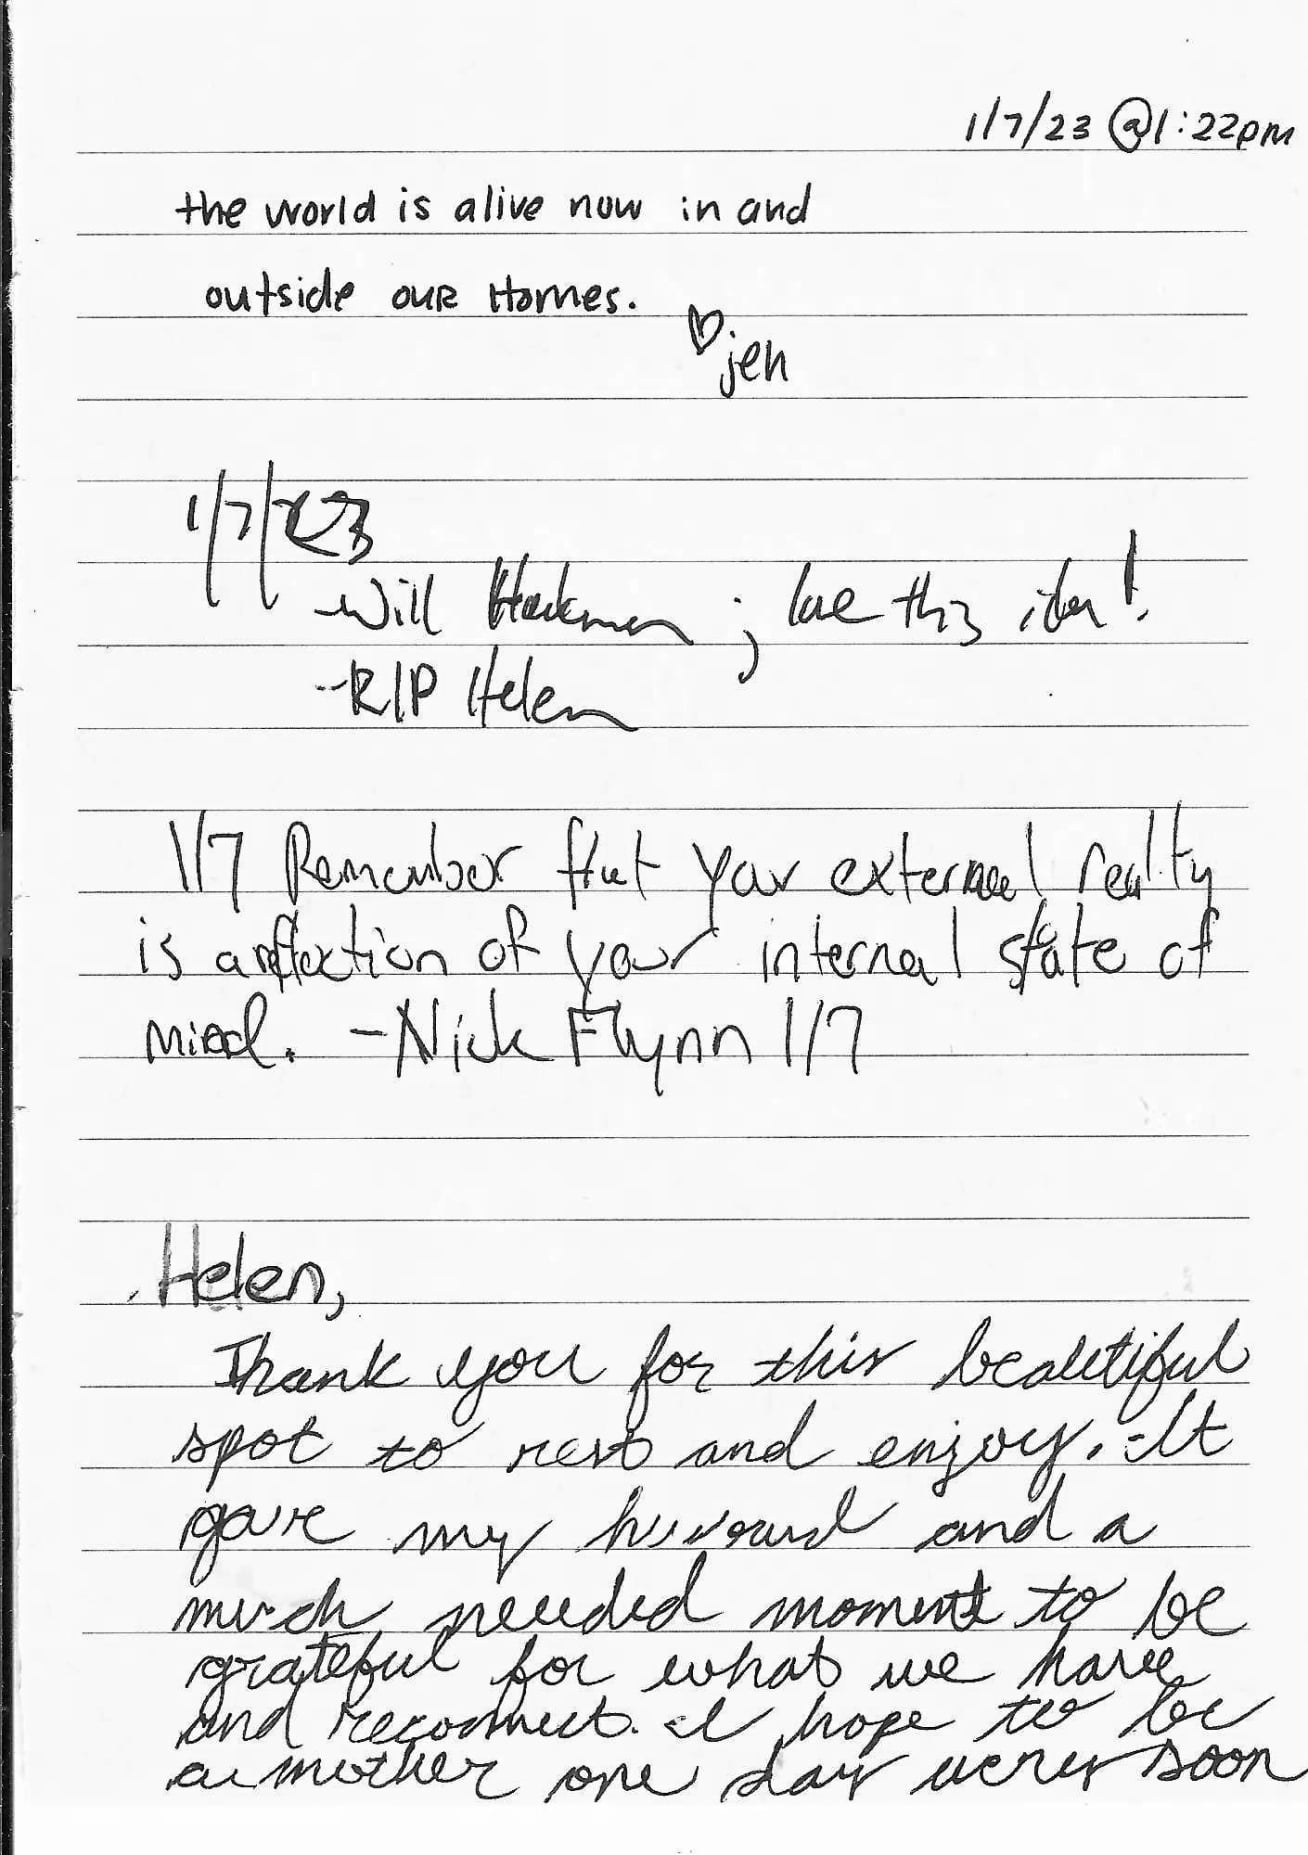 1/7/23 @1:22pm
the world is alive now in and
outside our Homes.
♡ jen
1/7/23
-Will Hackman ; love this idea!
-RIP Helen
1/7 Remember that your external reality
is a reflection of your internal state of
mind. -Nick Flynn 1/7
Helen,
Thank you for this beautiful
spot to rest and enjoy. It
gave my husband and a
much needed moment to be
grateful for what we have
and reconnect. I hope to be
a mother one day very soon